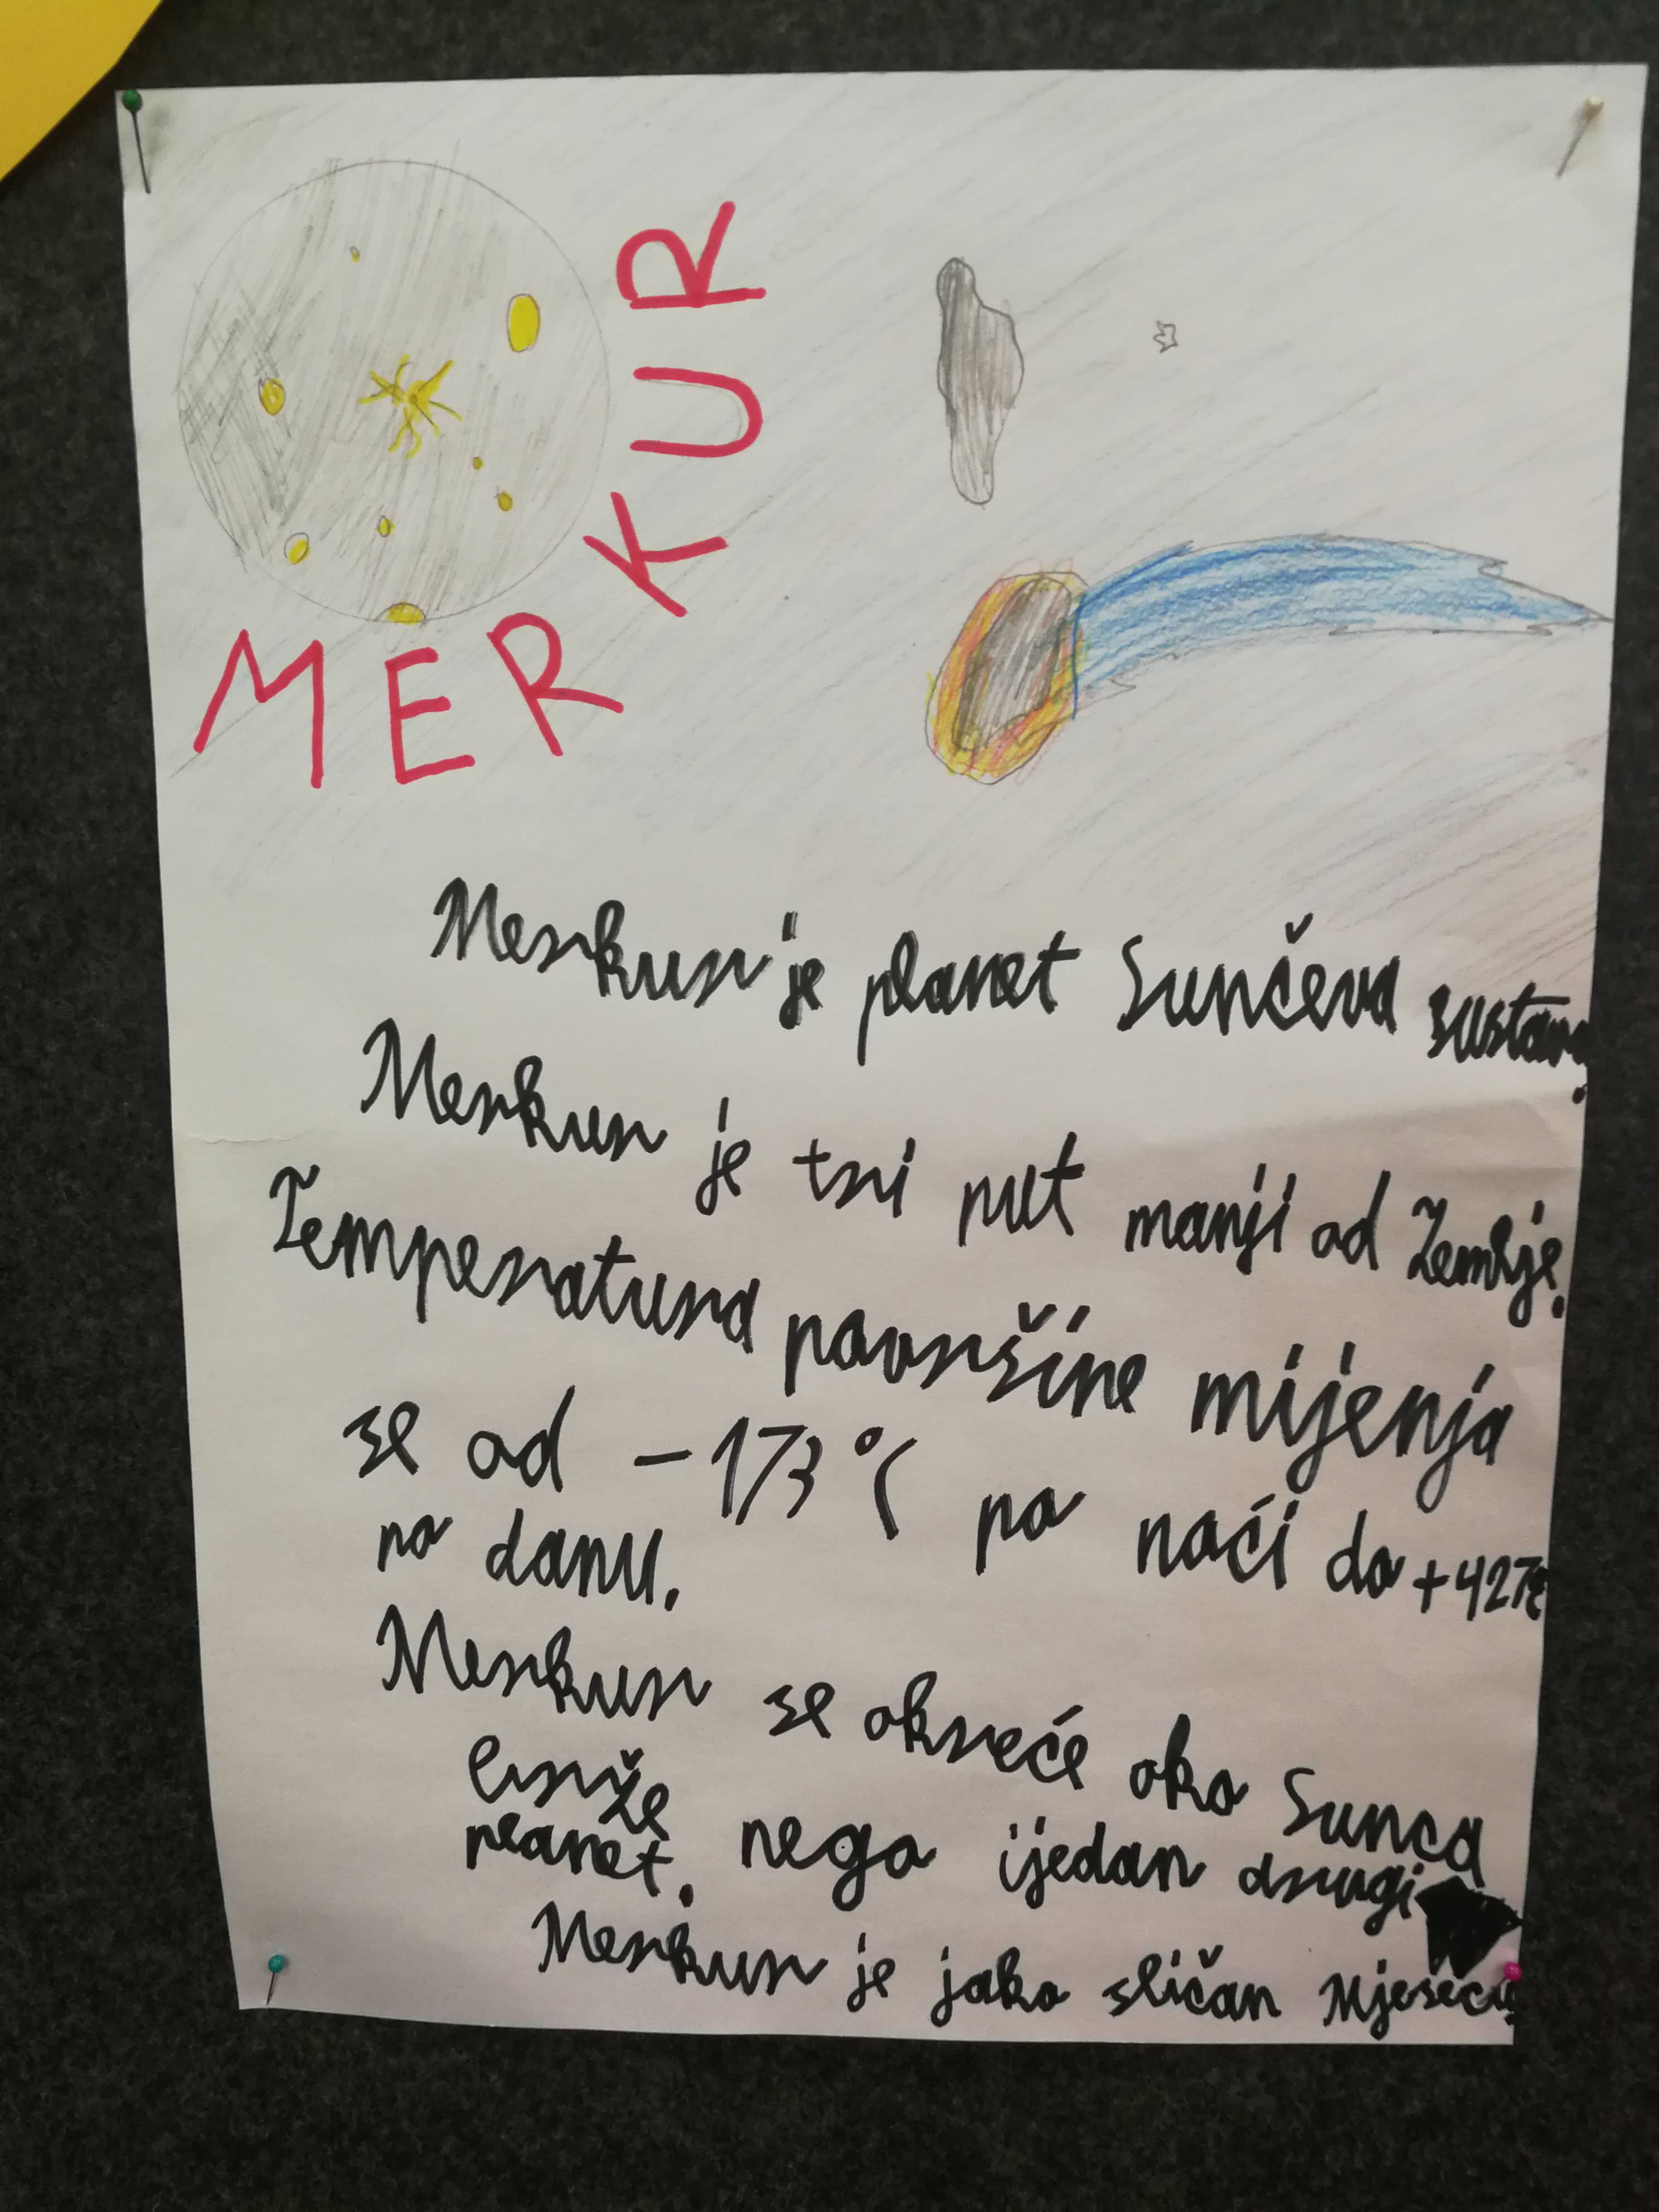 MERKUR
Merkur je planet Sunčeva sustava.
Merkur je tri put manji od Zemlje.
Temperatura površine mijenja
se od -173°C po noći do +427°C
na danu.
Merkur se okreće oko Sunca
brže nego ijedan drugi
planet.
Merkur je jako sličan Mjesecu.